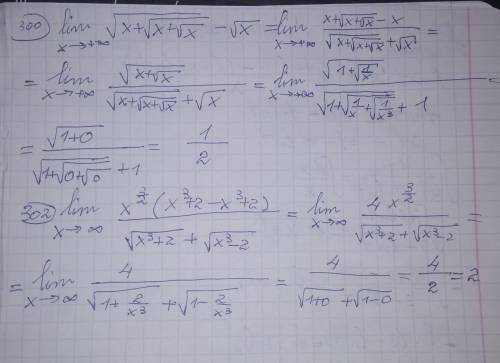 300) lim x→+∞ √(x+√(x+√x)) - √x = lim x→+∞ (x+√(x+√x) - x)/(√(x+√(x+√x)) + √x) =
= lim x→+∞ √(x+√x)/(√(x+√(x+√x)) + √x) = lim x→+∞ √(1+√(1/x))/(√(1+√(1/x+√(1/x³))) + 1) =
= √(1+0)/(√(1+√(0+√0)) + 1) = 1/2
302) lim x→∞ x^(3/2) (x³+2-x³+2)/(√(x³+2) + √(x³-2)) = lim x→∞ 4x^(3/2)/(√(x³+2) + √(x³-2)) =
= lim x→∞ 4/(√(1+2/x³) + √(1-2/x³)) = 4/(√(1+0) + √(1-0)) = 4/2 = 2